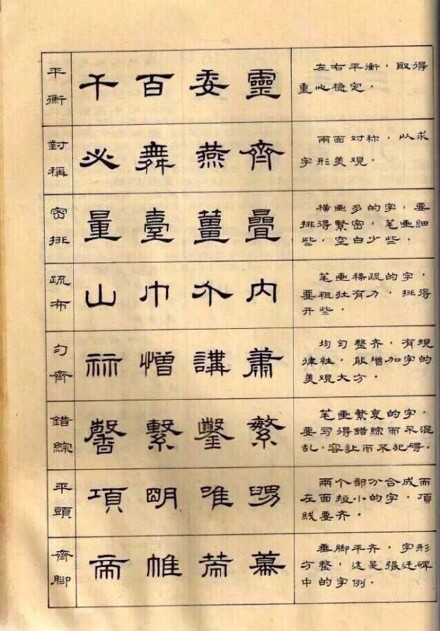 平衡 千 百 委 靈
左右平衡，取得
重心稳定。
對稱 必 舞 燕 齊
兩面对称，以求
字形美观。
密排 量 臺 薑 疊
横画多的字，要
排得繁密，笔画细
些，空白少些。
疏布 山 巾 介 内
笔画稀疏的字，
要粗壮有力，排得
开些。
匀齊 憎 講 蕭
均匀整齐，有规
律性，能增加字的
美观大方。
錯綜 馨 繫 鑿 繁
笔画繁复的字，
要写得错综而不混
乱，容让而不犯碍。
平頭 項 明 唯
兩个部分合成而
左面短小的字，頂
线要齐。
齊脚 帝 帷
垂脚平齐，字形
方整，这是張迁碑
中的字例。